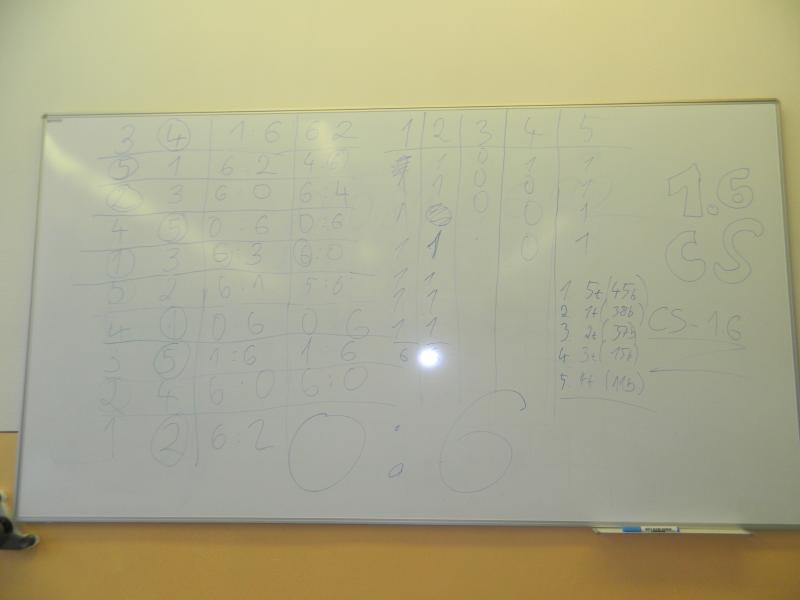 3 4 1:6 6:2
5 1 6:2 4:6
2 3 6:0 6:4
4 5 0:6 0:6
1 3 6:3 6:0
5 2 6:1 5:6
4 1 0:6 0:6
3 5 1:6 1:6
2 4 6:0 6:0
1 2 6:2 0:6
1 2 3 4 5
1 0 1 1
1 1 0 0 1
1 0 0 1
1 1 0 1
1 1
1 1
1 1
6
1.6
CS
1 5t (45b)
2 1t (38b)
3 2t (37b)
4 3t (15b)
5 4t (11b)
CS-16